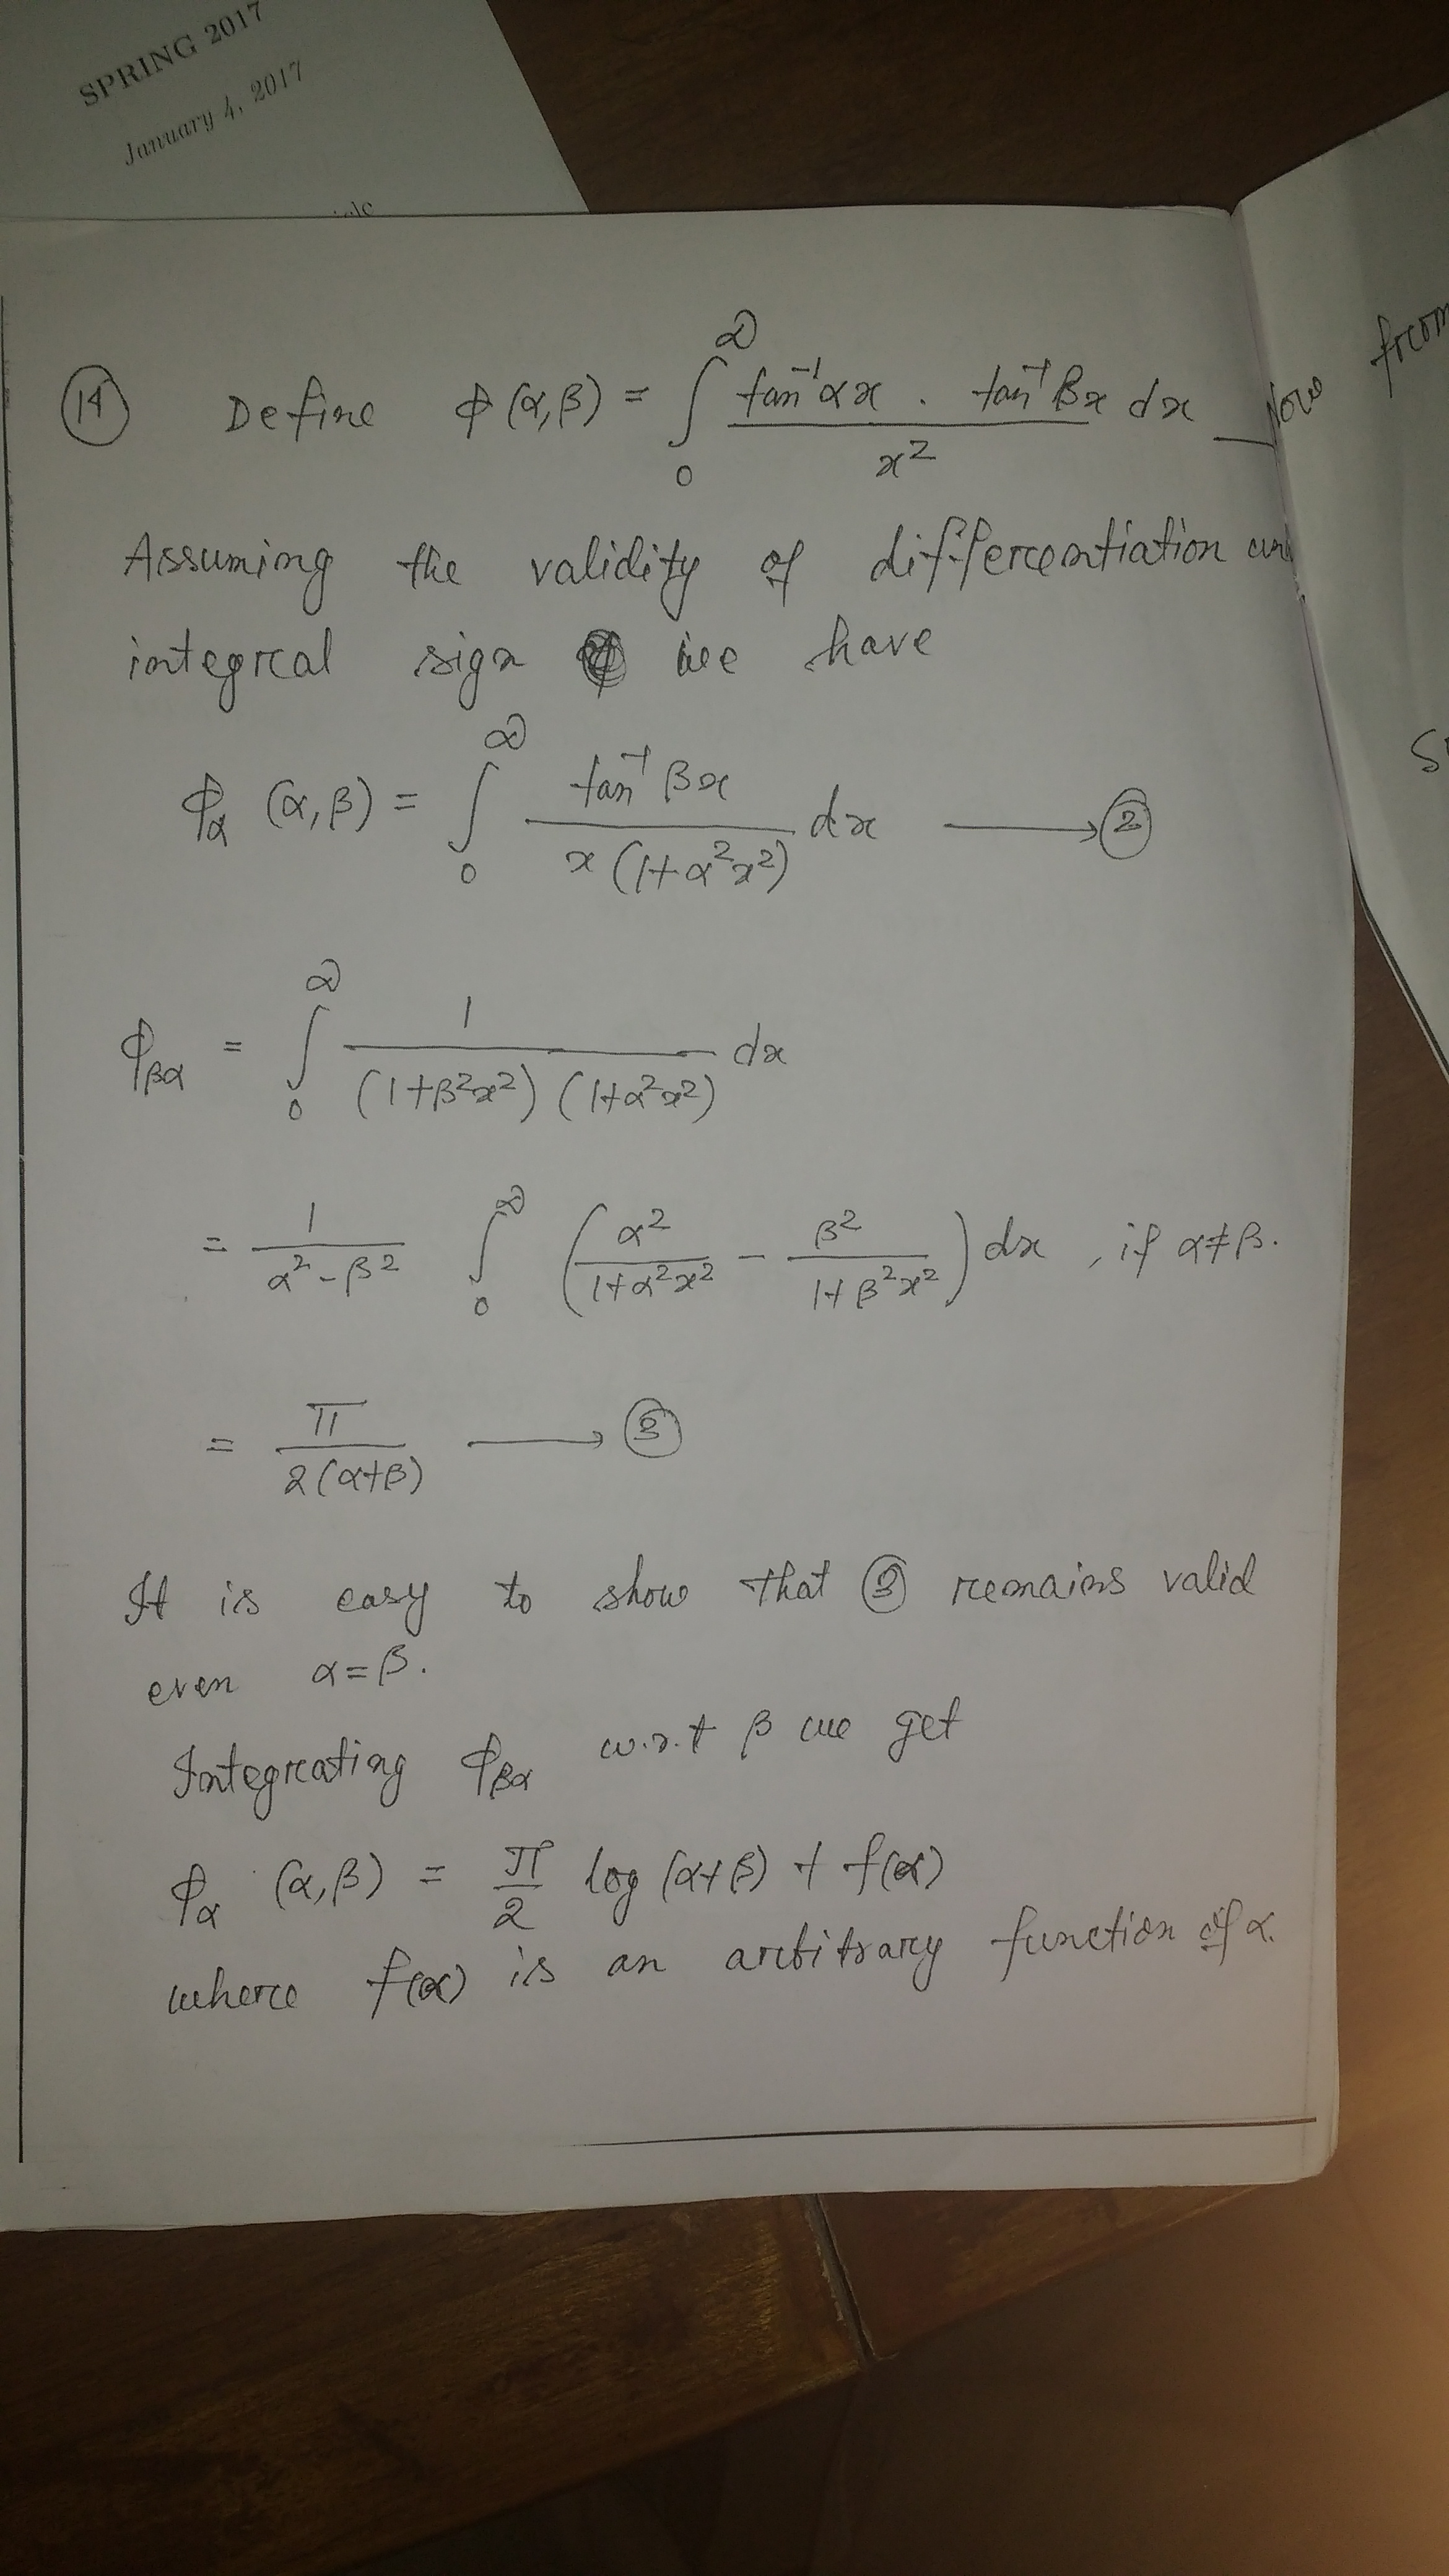 SPRING 2017
January 4, 2017
(14) Define φ(α,β) = ∫₀^∞ (tan⁻¹αx . tan⁻¹βx)/x² dx
Assuming the validity of differentiation
integral sign we have
φ_α (α,β) = ∫₀^∞ tan⁻¹βx / (x(1+α²x²)) dx ⟶ (2)
φ_βα = ∫₀^∞ 1/((1+β²x²)(1+α²x²)) dx
= 1/(α²-β²) ∫₀^∞ (α²/(1+α²x²) - β²/(1+β²x²)) dx , if α≠β.
= π/(2(α+β)) ⟶ (3)
It is easy to show that (3) remains valid
even α=β.
Integrating φ_βα w.r.t β we get
φ_α (α,β) = π/2 log(α+β) + f(α)
where f(α) is an arbitrary function of α.
Now from